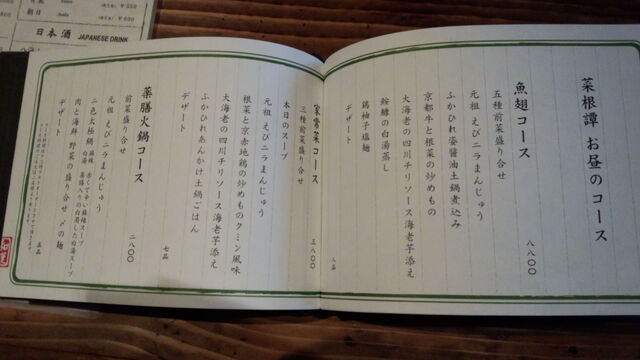 菜根譚 お昼のコース
魚翅コース
八八〇〇
五種前菜盛り合せ
元祖 えびニラまんじゅう
ふかひれ姿醤油土鍋煮込み
京都牛と根菜の炒めもの
大海老の四川チリソース海老芋添え
鮟鱇の白湯蒸し
鶏柚子塩麺
デザート
八品
家常菜コース
三八〇〇
三種前菜盛り合せ
本日のスープ
元祖 えびニラまんじゅう
根菜と京赤地鶏の炒めものクミン風味
大海老の四川チリソース海老芋添え
ふかひれあんかけ土鍋ごはん
デザート
七品
薬膳火鍋コース
二八〇〇
前菜盛り合せ
元祖 えびニラまんじゅう
二色太極鍋
麻辣 赤くて辛い麻辣スープ
白湯 薬膳入りの白濁した白湯スープ
肉と海鮮 野菜の盛り合せ 〆の麺
デザート
五品
日本酒 JAPANESE DRINK
朝日